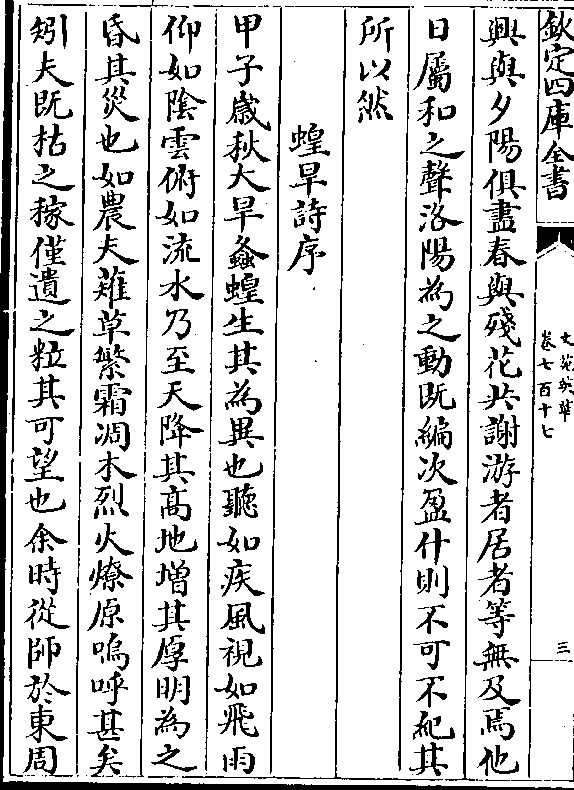 欽定四庫全書
文苑英華
卷七百十七
三
興與夕陽俱盡春與殘花共謝游者居者等無及焉他
日屬和之聲洛陽為之動既編次盈什則不可不紀其
所以然
蝗旱詩序
甲子歲秋大旱螽蝗生其為異也聽如疾風視如飛雨
仰如陰雲俯如流水乃至天降其高地增其厚明為之
昏其災也如農夫薙草繁霜凋木烈火燎原嗚呼甚矣
矧夫既枯之稼僅遺之粒其可望也余時從師於東周